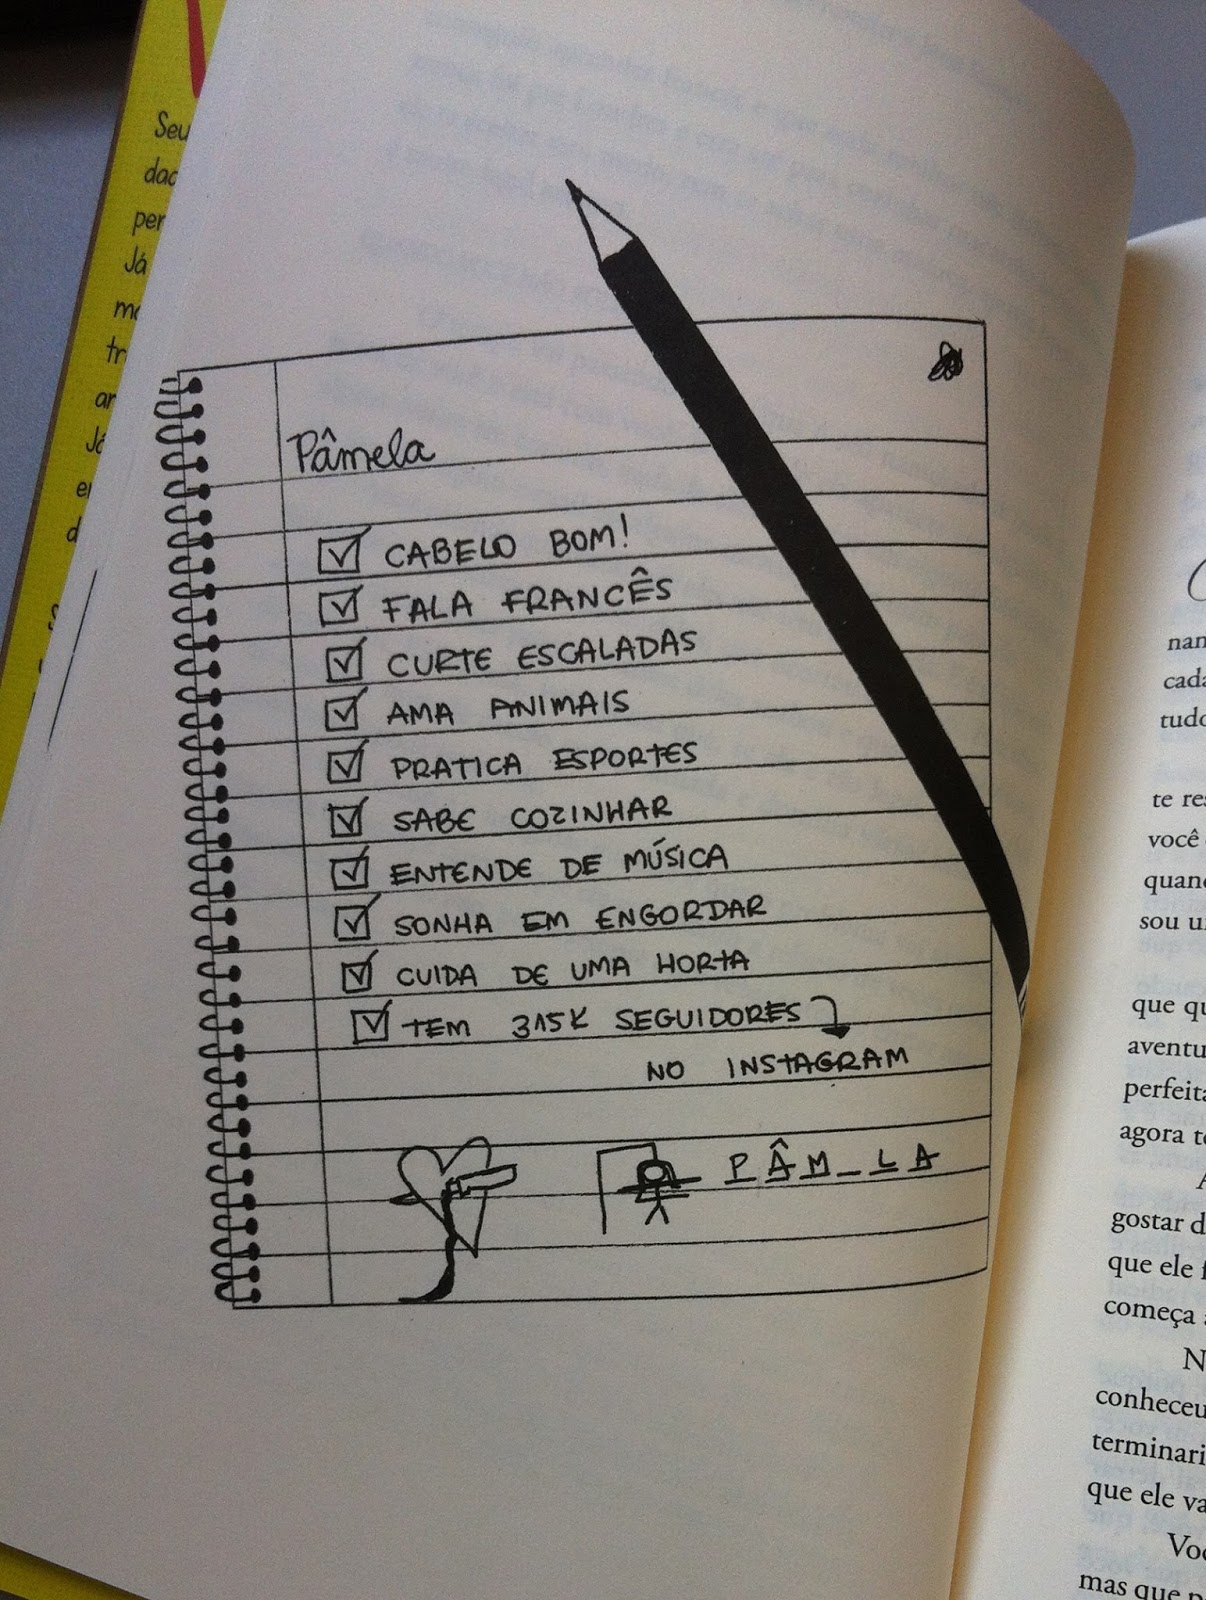 Seu
per
Já
Pâmela
CABELO BOM!
FALA FRANCÊS
CURTE ESCALADAS
AMA ANIMAIS
PRATICA ESPORTES
SABE COZINHAR
ENTENDE DE MÚSICA
SONHA EM ENGORDAR
CUIDA DE UMA HORTA
TEM 315K SEGUIDORES
NO INSTAGRAM
P Â M _ L A
cada
tudo
te
você
sou
que
perfeita
agora
gostar
que ele
começa
conheceu
que ele
mas que